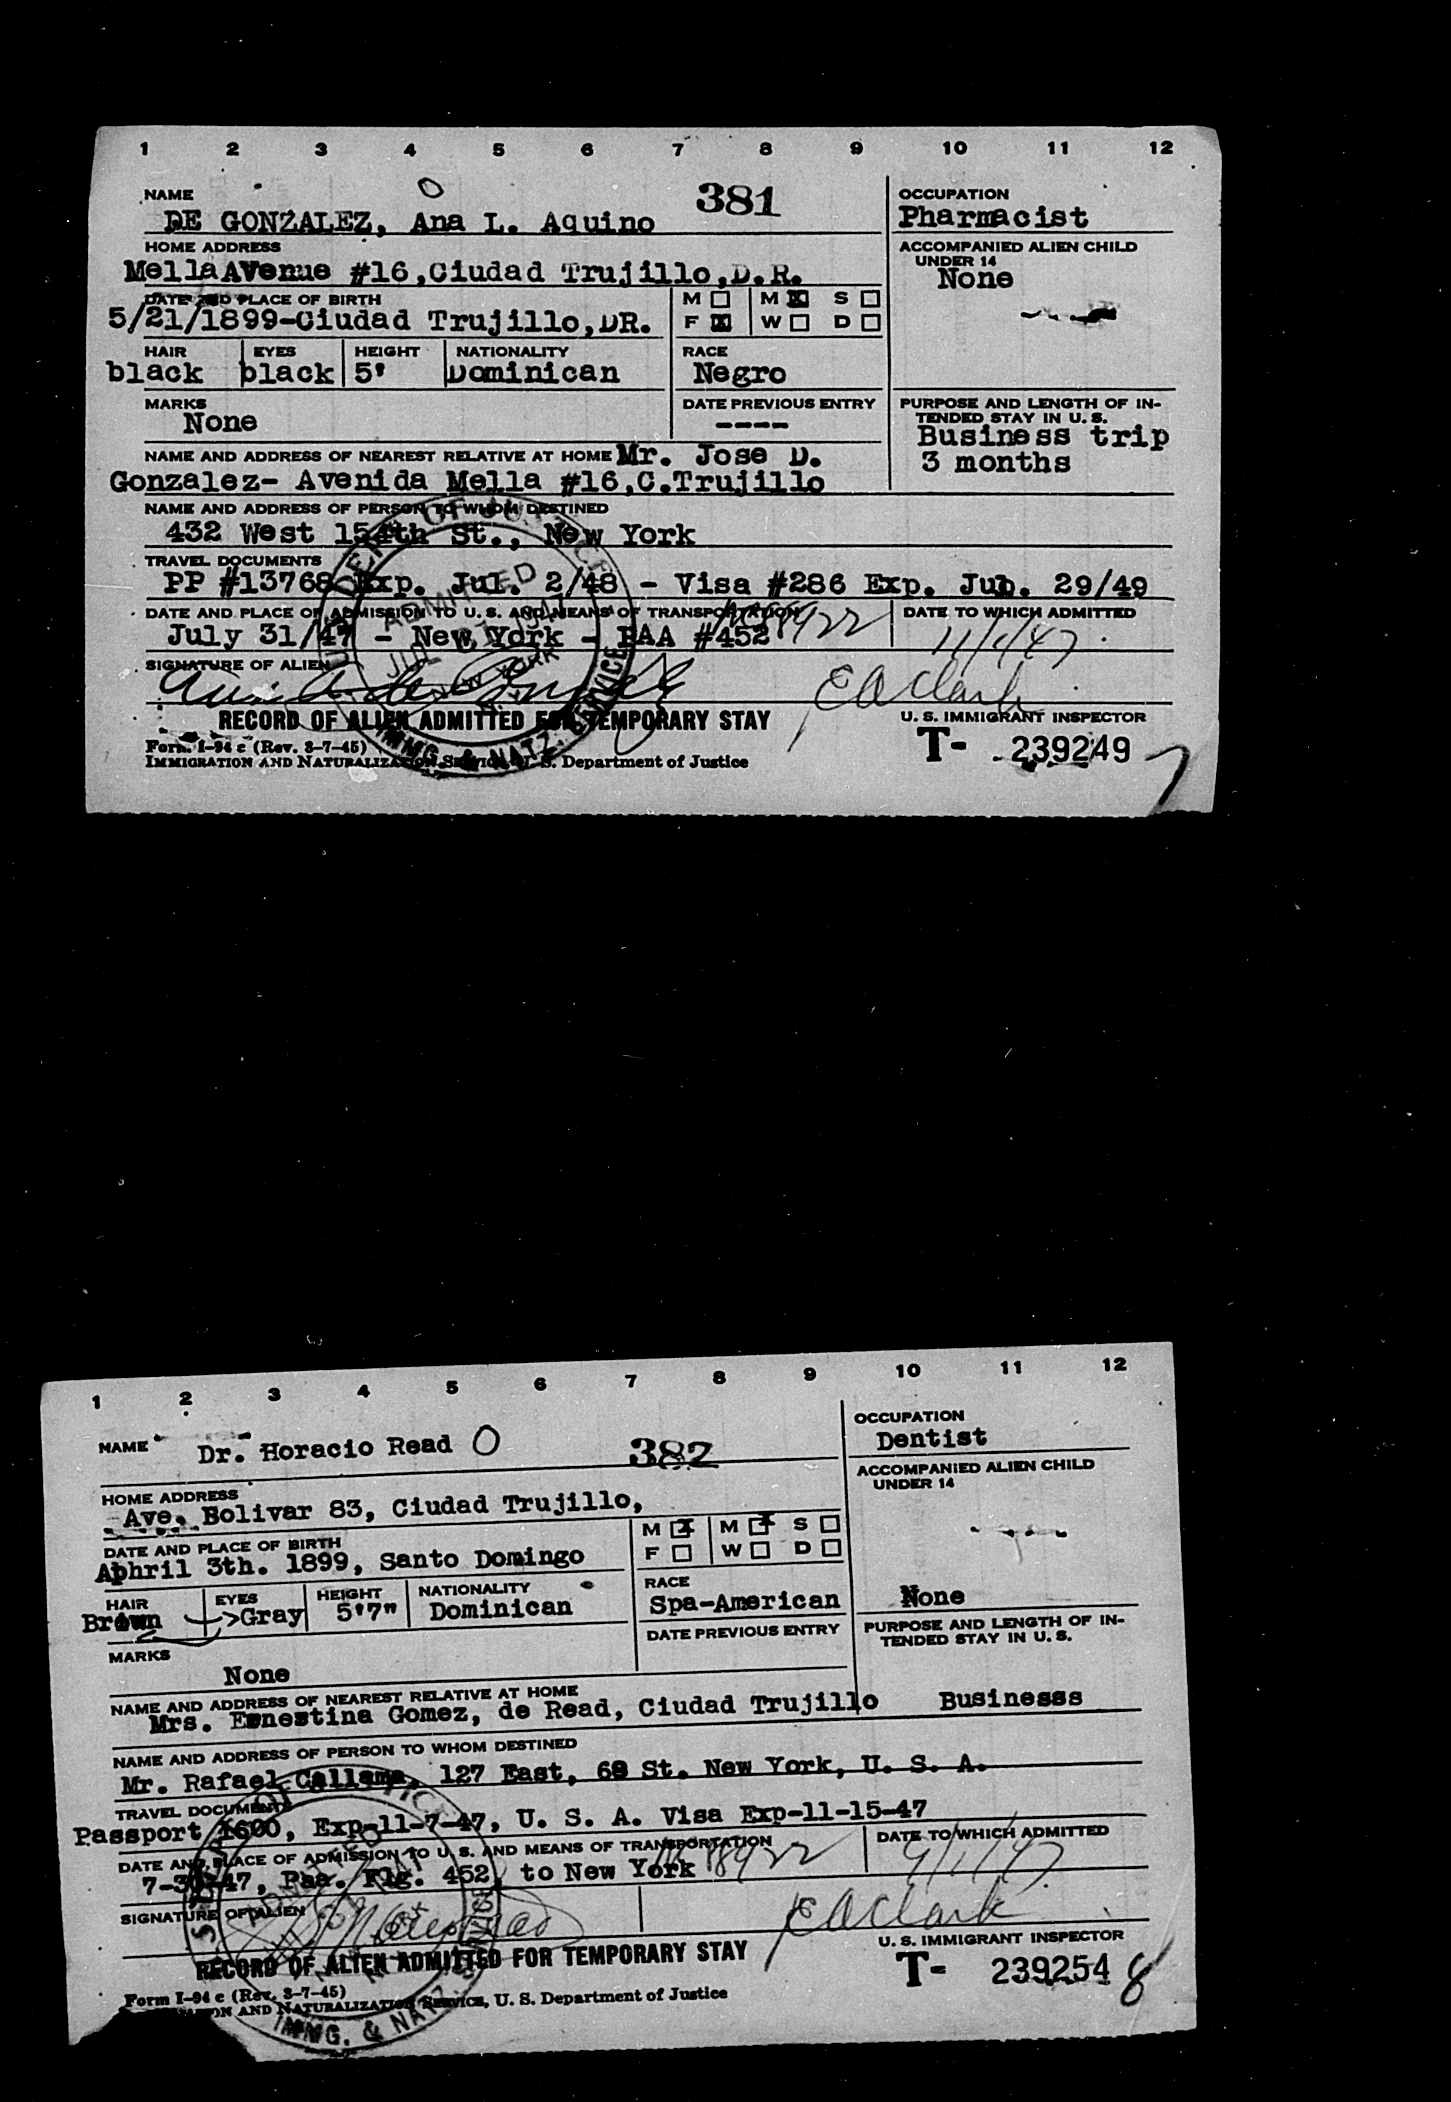 1 2 3 4 5 6 7 8 9 10 11 12
NAME
DE GONZALEZ, Ana L. Aquino
381
OCCUPATION
Pharmacist
HOME ADDRESS
MellaAVenue #16,Ciudad Trujillo,D.R.
ACCOMPANIED ALIEN CHILD
UNDER 14
None
DATE AND PLACE OF BIRTH
5/21/1899-Ciudad Trujillo,DR.
M M X S
F X W D
HAIR EYES HEIGHT NATIONALITY RACE
black black 5' Dominican Negro
MARKS
None
DATE PREVIOUS ENTRY
----
PURPOSE AND LENGTH OF IN-
TENDED STAY IN U. S.
Business trip
3 months
NAME AND ADDRESS OF NEAREST RELATIVE AT HOME Mr. Jose D.
Gonzalez- Avenida Mella #16,C.Trujillo
NAME AND ADDRESS OF PERSON TO WHOM DESTINED
432 West 154th St., New York
TRAVEL DOCUMENTS
PP #13768 Exp. Jul. 2/48 - Visa #286 Exp. Jub. 29/49
DATE AND PLACE OF ADMISSION TO U. S. AND MEANS OF TRANSPORTATION
DATE TO WHICH ADMITTED
July 31/47 - New York - PAA #452
11/1/47
SIGNATURE OF ALIEN
E A Clark
RECORD OF ALIEN ADMITTED FOR TEMPORARY STAY
U. S. IMMIGRANT INSPECTOR
Form I-94 c (Rev. 3-7-45)
IMMIGRATION AND NATURALIZATION SERVICE, U. S. Department of Justice
T- 239249
7
ADMITTED
NEW YORK
IMMG. & NATZ. SERVICE
1 2 3 4 5 6 7 8 9 10 11 12
NAME
Dr. Horacio Read
382
OCCUPATION
Dentist
HOME ADDRESS
Ave. Bolivar 83, Ciudad Trujillo,
ACCOMPANIED ALIEN CHILD
UNDER 14
None
DATE AND PLACE OF BIRTH
Aphril 3th. 1899, Santo Domingo
M X M X S
F W D
HAIR EYES HEIGHT NATIONALITY RACE
Brown Gray 5'7" Dominican Spa-American
DATE PREVIOUS ENTRY
PURPOSE AND LENGTH OF IN-
TENDED STAY IN U. S.
Businesss
MARKS
None
NAME AND ADDRESS OF NEAREST RELATIVE AT HOME
Mrs. Ernestina Gomez, de Read, Ciudad Trujillo
NAME AND ADDRESS OF PERSON TO WHOM DESTINED
Mr. Rafael 127 East, 68 St. New York, U. S. A.
TRAVEL DOCUMENTS
Passport 1600, Exp-11-7-47, U. S. A. Visa Exp-11-15-47
DATE AND PLACE OF ADMISSION TO U. S. AND MEANS OF TRANSPORTATION
DATE TO WHICH ADMITTED
7-30-47, Paa. Flg. 452, to New York
9/1/47
SIGNATURE OF ALIEN
E A Clark
RECORD OF ALIEN ADMITTED FOR TEMPORARY STAY
U. S. IMMIGRANT INSPECTOR
Form I-94 c (Rev. 3-7-45)
AND NATURALIZATION SERVICE, U. S. Department of Justice
T- 239254
8
IMMG. & NATZ. SERVICE